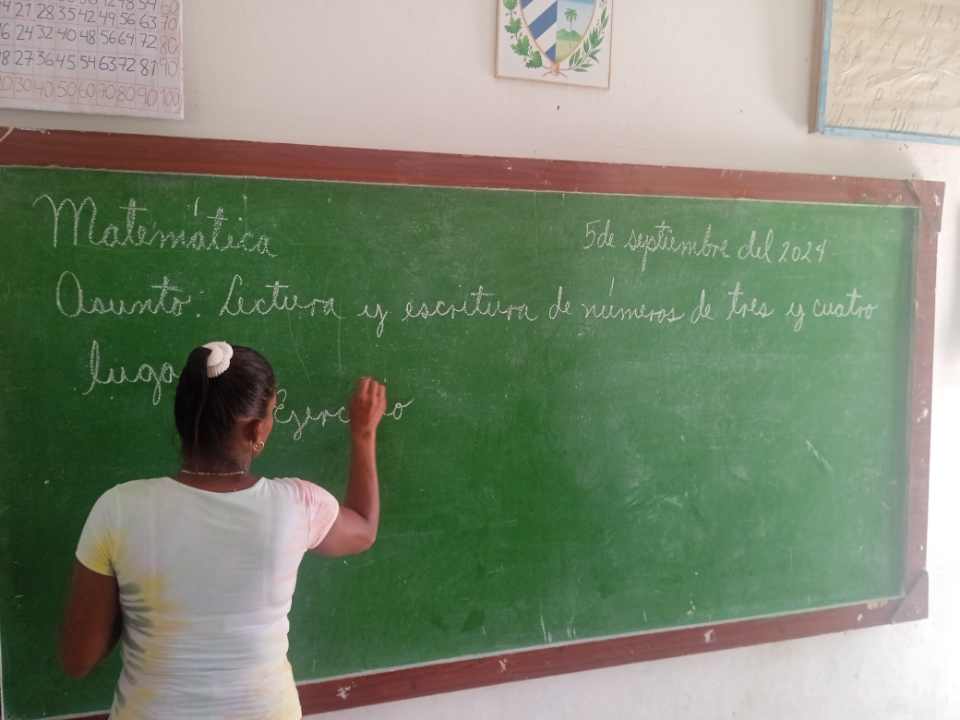 14 21 28 35 42 49 56 63 70
16 24 32 40 48 56 64 72 80
18 27 36 45 54 63 72 81 90
20 30 40 50 60 70 80 90 100
Matemática 5 de septiembre del 2024
Asunto: Lectura y escritura de números de tres y cuatro
luga